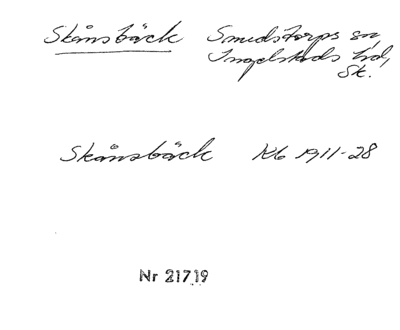 Skånsbäck Smedstorps sn,
Ingelstads hd,
Sk.
Skånsbäck Kb 1911-28
Nr 21719